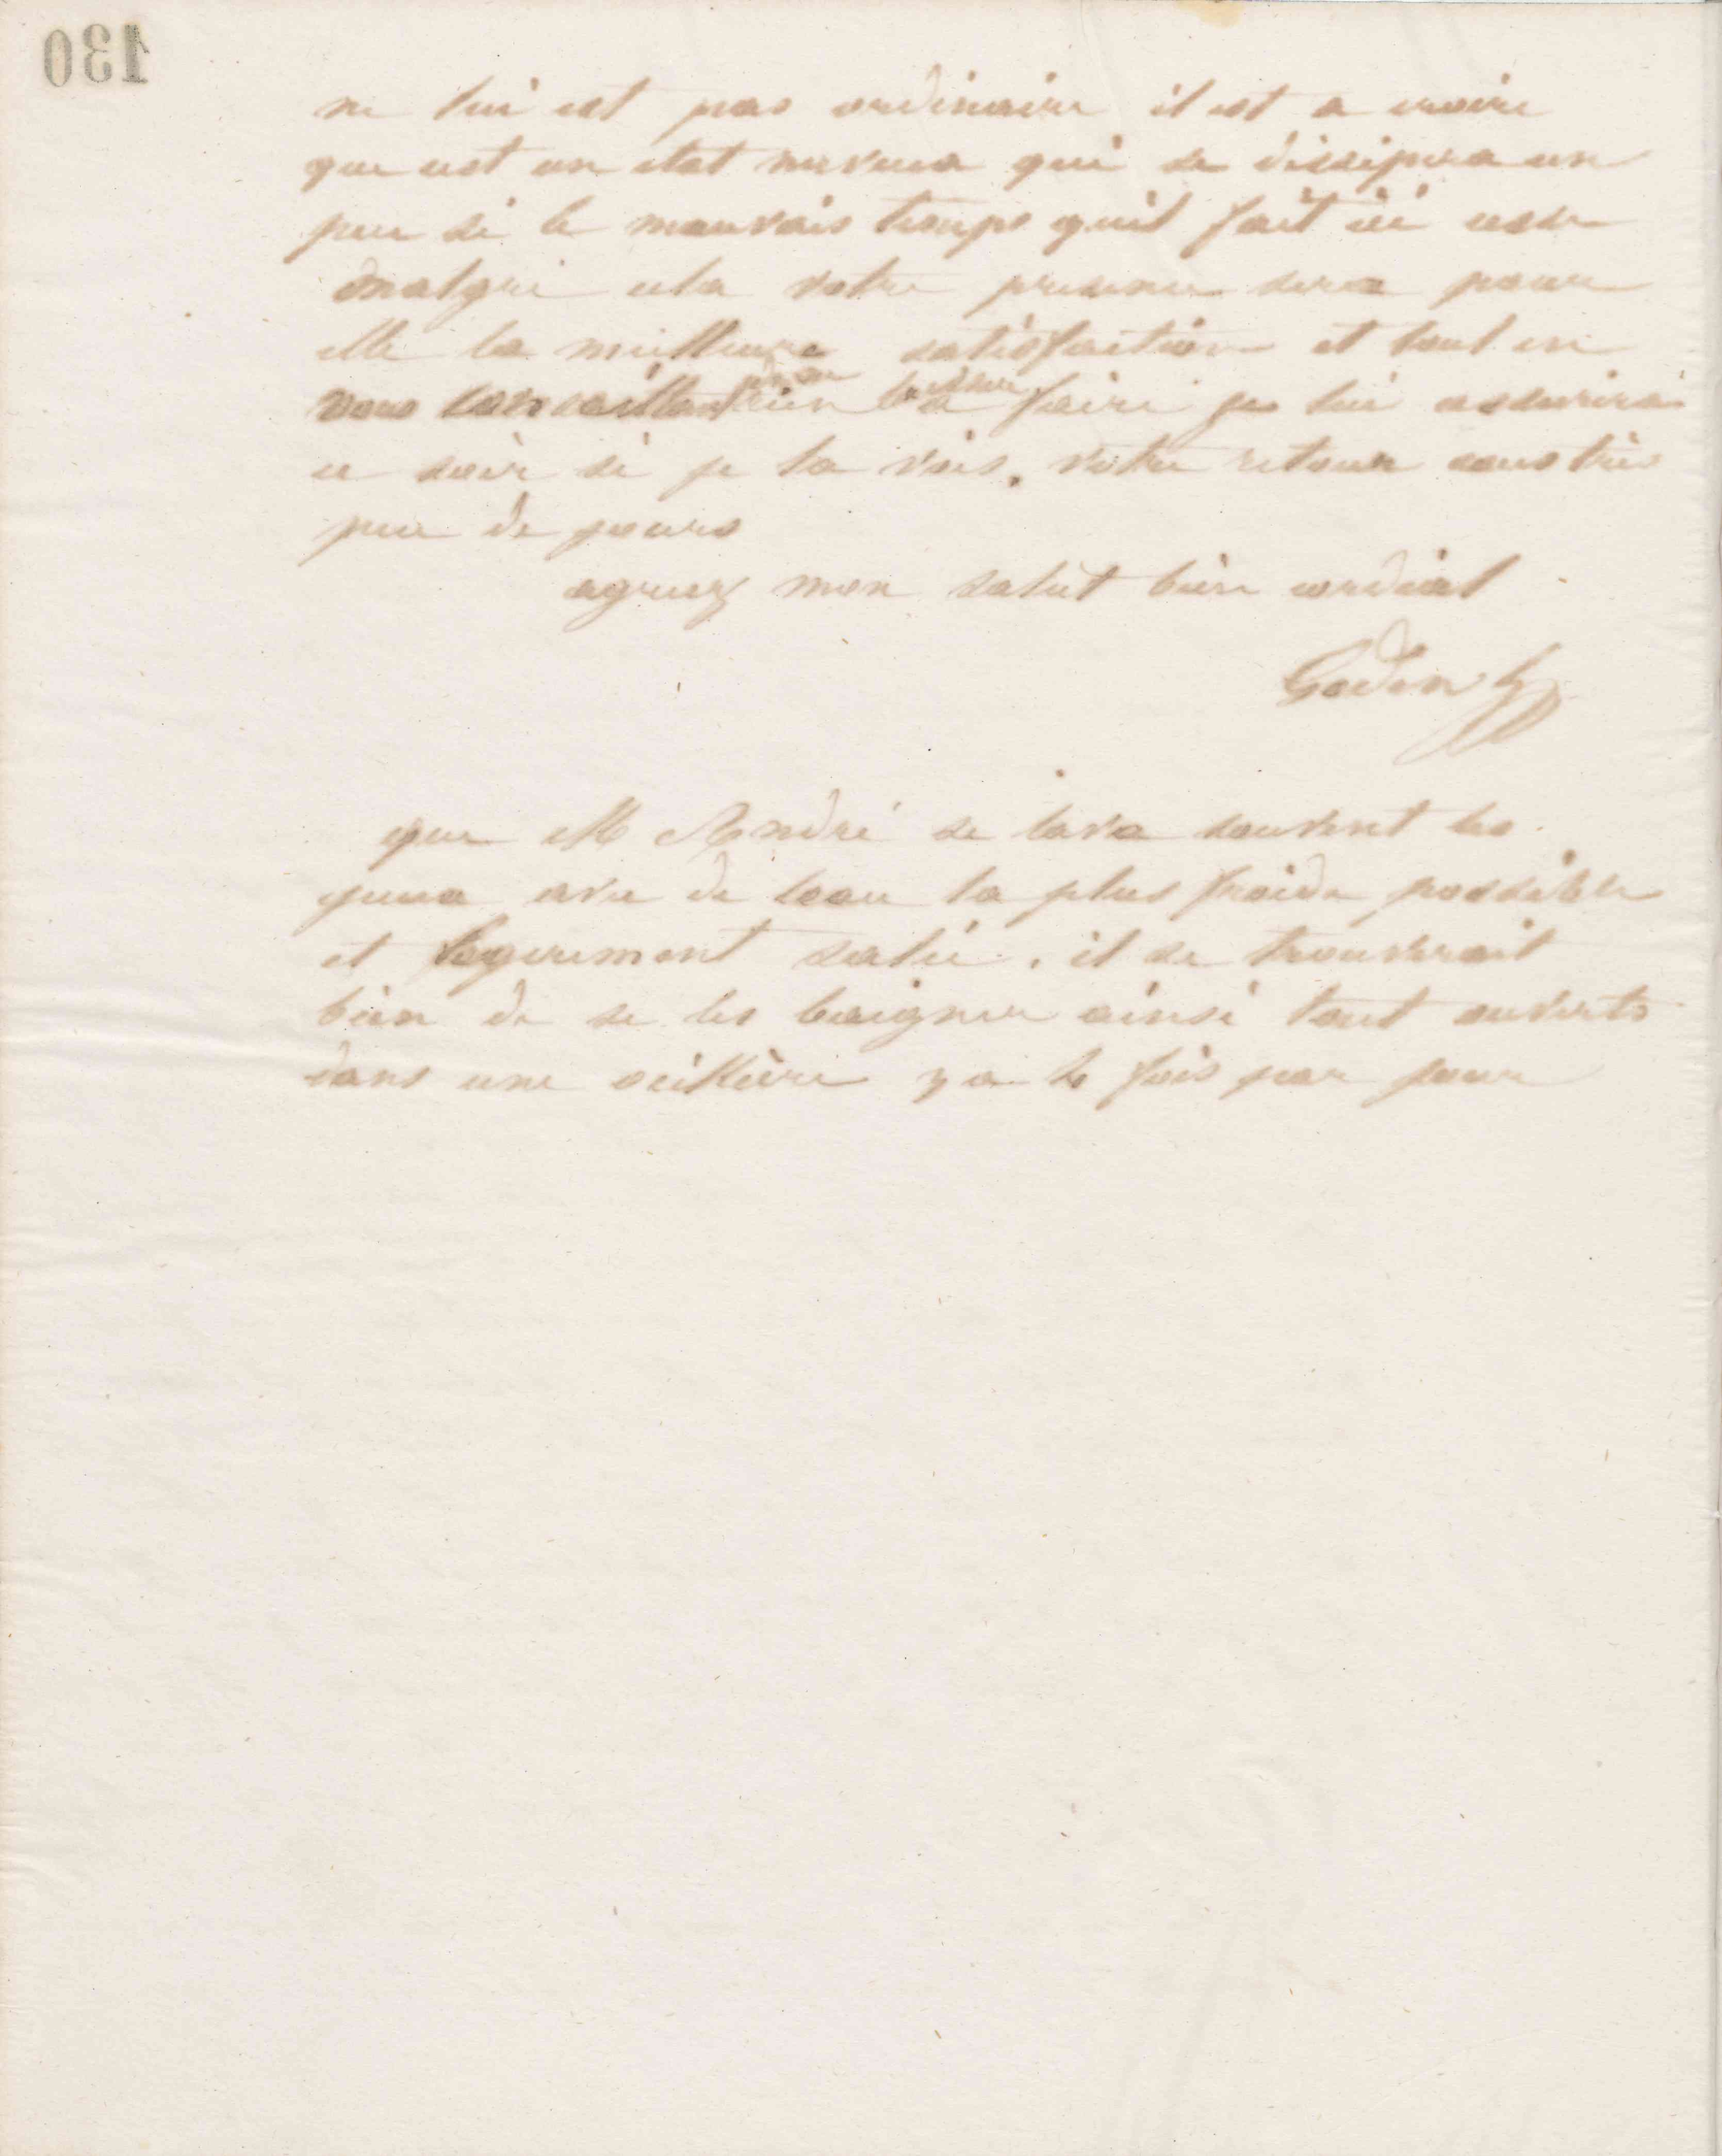 130
ne lui est pas ordinaire il est a croire
que cest un etat nerveux qui se dissipera un
peu si le mauvais temps quil fait ici cesse
malgré cela votre presence sera pour
elle la meilleure satisfaction et tout en
vous conseillant rien faire je lui assurerai
ce soir si je la vois. votre retour sous très
peu de jours
agreez mon salut bien cordial
Godin
que M André se lave souvent les
yeux avec de leau la plus froide possible
et legerement salée. il se trouverait
bien de se les baigner ainsi tout ouverts
dans une oeillère 3 a 4 fois par jour